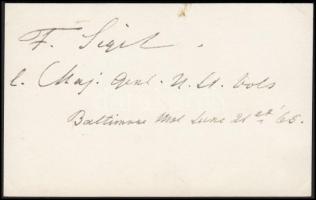 F. Sigel.
l. Maj. Genl. U. St. Vols
Baltimore Md June 21st '65.